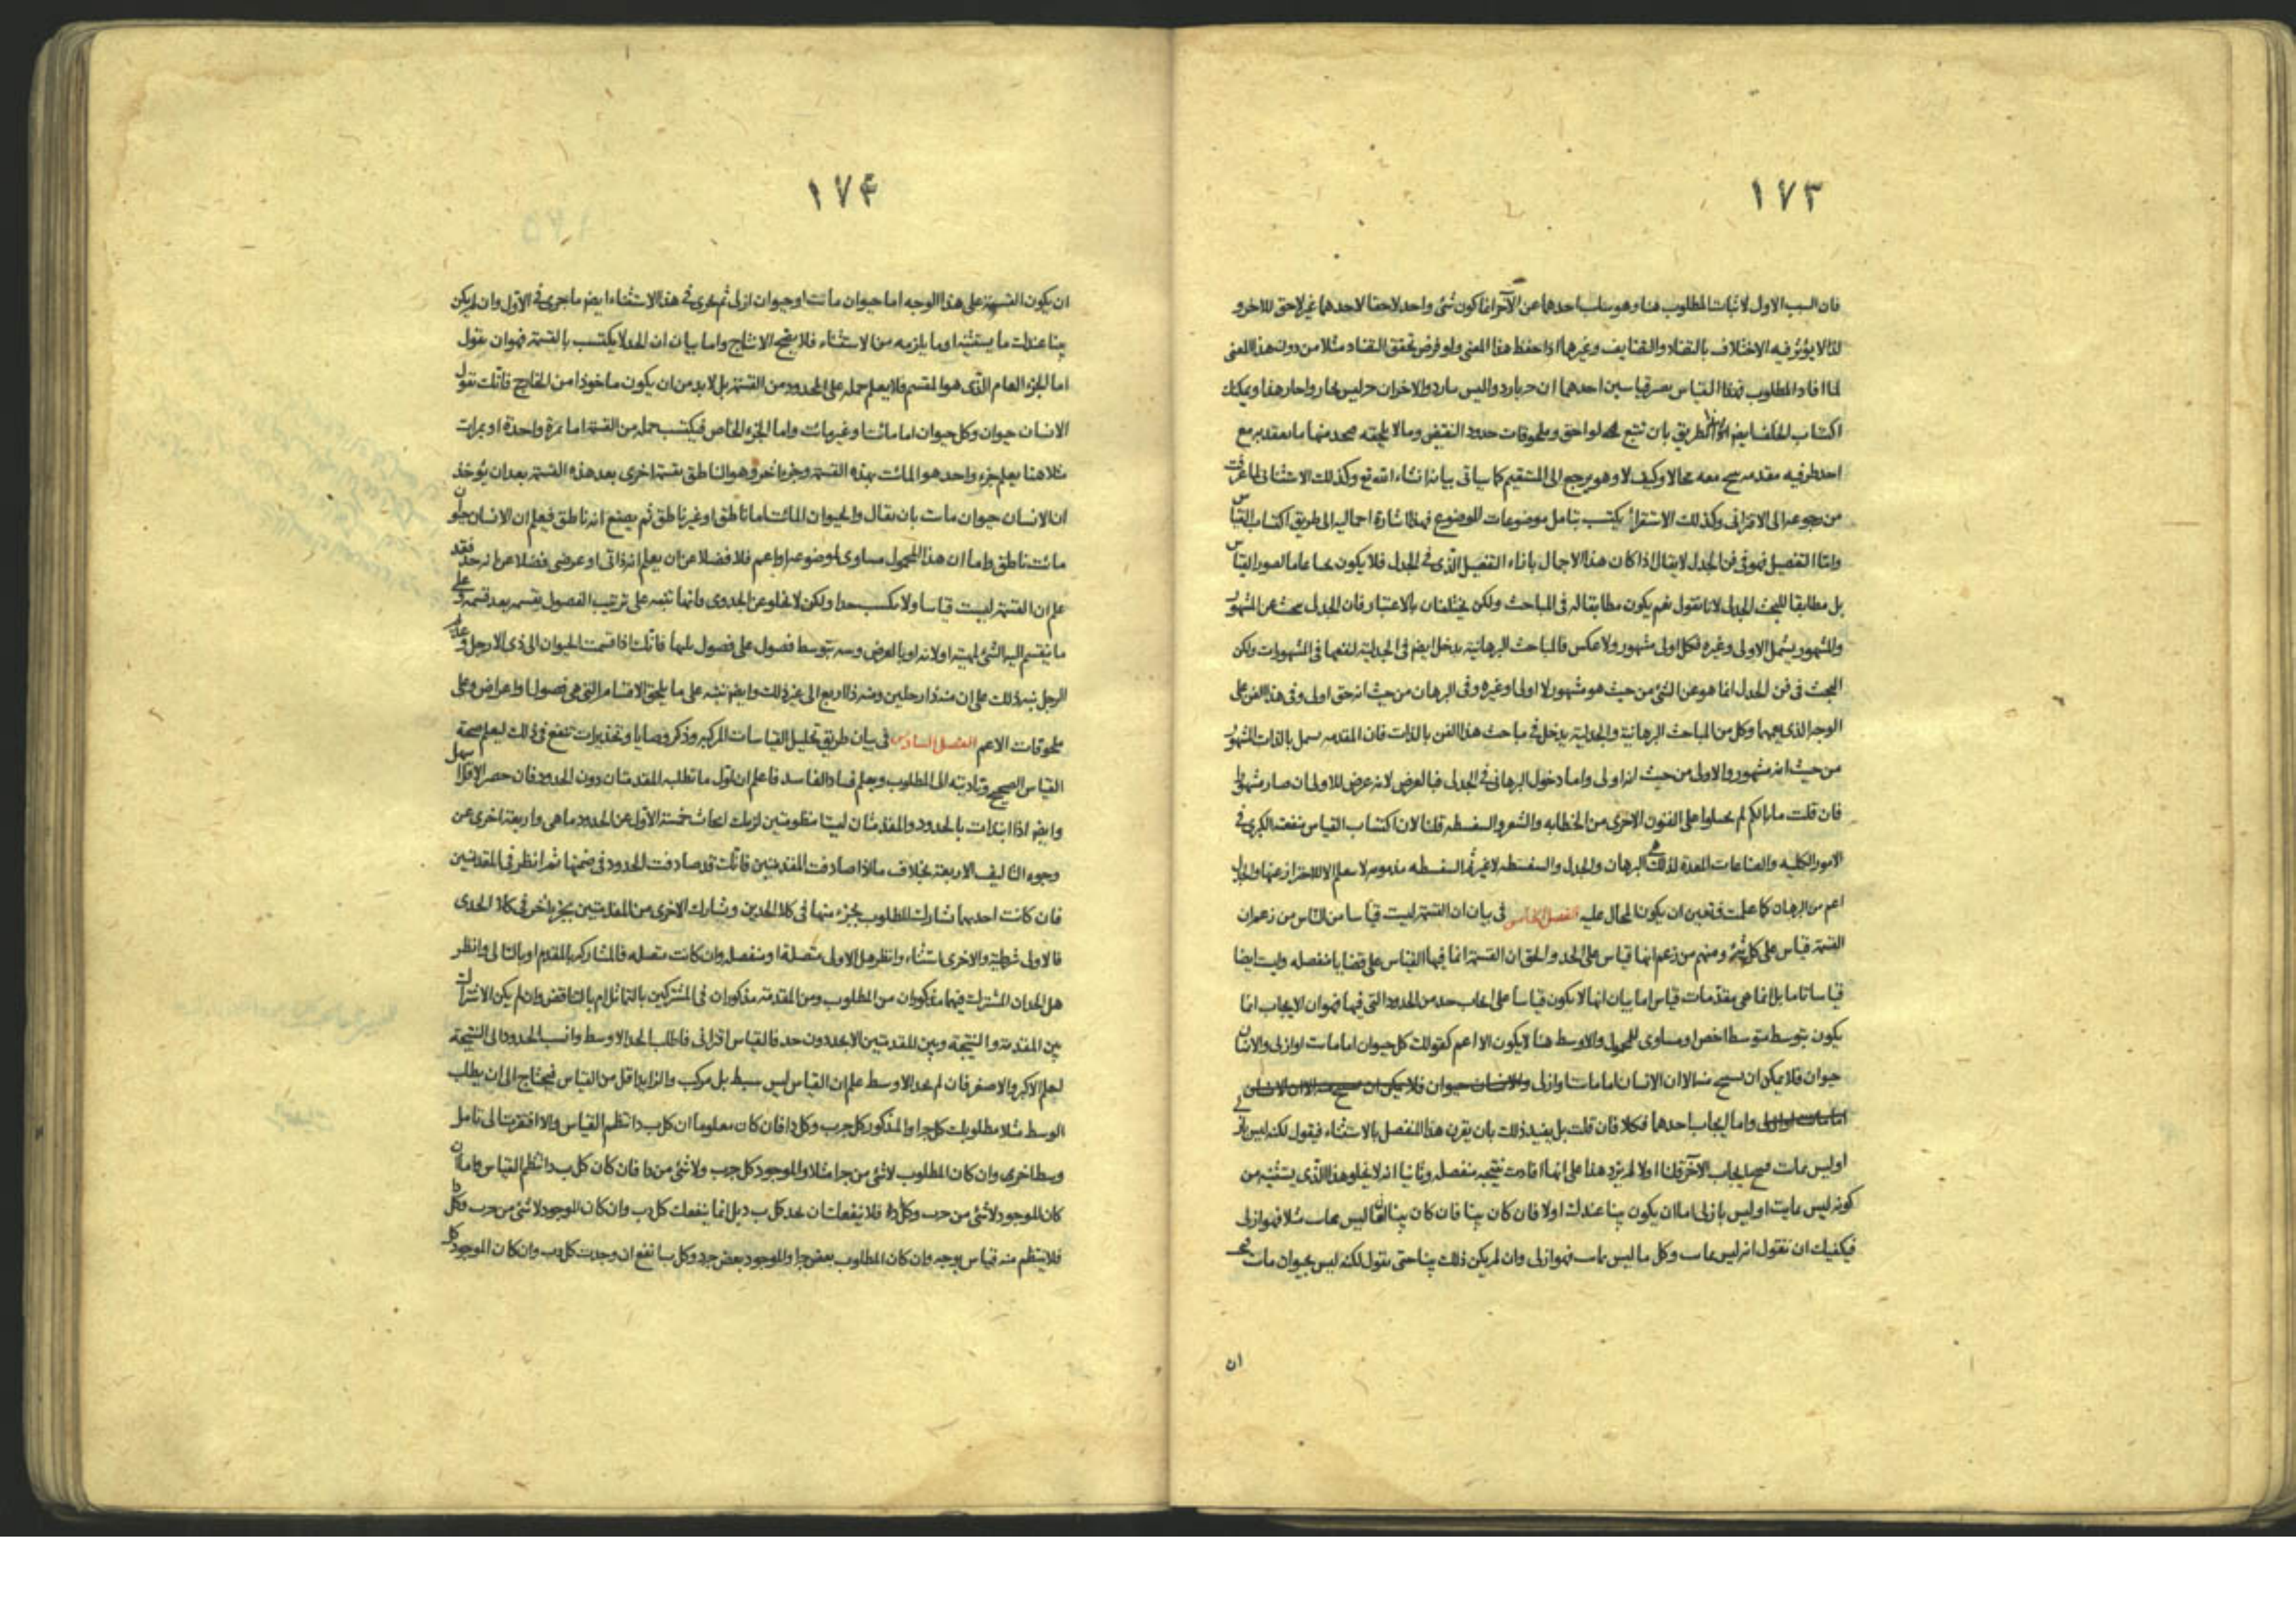 ١٧٣
فان السبب الاول لاثبات المطلوب هنا وهو سلب احدهما عن الآخر انما كون شئ واحد لاحقا لاحدهما غير لاحق للاخر و
لذا لا يؤثر فيه الاختلاف بالتضاد والتضايف وغيرهما اذا حفظ هذا المعنى ولو فرض تحقق التضاد مثلا من دون هذا المعنى
لما افاد المطلوب فهذا القياس بصر قياسين احدهما ان حربارد والليس بارد والاخر ان حرليس بحار واحار هذا ويمكنك
اكتساب الخلف ايضا الطريق بان تتبع لواحق وملحوقات حدود النقيض ومالا يلحقه منها مقدمه مع
احد طرفيه مقدمه معه محالا وكيف لا وهو يرجع الى المستقيم كما سياتى بيانه انشاء الله تع وكذلك الاستثنائى لما عرفت
من رجوعه الى الاقترانى وكذلك الاستقراء يكتسب بتامل موضوعات الموضوع فهذا اشارة اجماليه الى طريق اكتساب القياس
وامّا التفصيل فهو فى فن الجدل لا يقال اذا كان هذا الاجمال بازاء التفصيل الذى فى الجدل فلا يكون بحثا عاما لصور القياس
بل مطابقا للبحث الجدل لانا نقول نعم يكون مطابقا له فى المباحث ولكن يختلفان بالاعتبار فان الجدل يبحث عن المشهور
والمشهور يشمل الاولى وغيره فكل اولى مشهور ولا عكس فالمباحث البرهانية يدخل ايضا فى الجدلية لنفعها فى المشهورات ولكن
البحث فى فن الجدل انما هو عن الشئ من حيث هو مشهور لا اوليا وغيره وفى البرهان من حيث انه حق اولى وفى هذا الفن على
الوجه الذى يعمهما وكل من المباحث البرهانية والجدلية يدخل فى مباحث هذا الفن بالذات فان المقدمه تشمل بالذات المشهور
من حيث انه مشهور والاولى من حيث انه اولى واما دخول البرهانى فى الجدلى فبالعرض لانه عرض للاولى ان صار مشهورا
فان قلت ما بالكم لم تحملوا على الفنون الاخرى من الخطابه والشعر والسفسطه قلنا لان اكتساب القياس منفعته الكبرى فى
الامور الكليه والصناعات المعدة لذلك هى البرهان والجدل والسفسطه لا غير ثم السفسطه مذمومه لا يتعلم الا للاحتراز عنها والجدل
اعم من البرهان كما علمت فتعين ان يكون المحال عليه الفصل الخامس فى بيان ان القسمة ليست قياسا من الناس من زعم ان
القسمة قياس على كل شئ ومنهم من زعم انها قياس على الحد والحق ان القسمة انما فيها القياس على قضايا منفصله وليست ايضا
قياسا تاما بل انما هى مقدمات قياس اما بيان انها لا يكون قياسا على ايجاب حد من الحدود التى فيها فهو ان الايجاب انما
يكون بتوسط متوسط اخص او مساوى للمحمول والاوسط هنا لا يكون الا اعم كقولك كل حيوان اما مائت او ازلى والانسان
حيوان فلا يمكن ان ينتج منه الا ان الانسان اما مائت او ازلى
واما ايجاب احدها فكلا فان قلت بل يفيد ذلك بان يقرن هذا المنفصل بالاستثناء فيقول لكنه ليس بازلى
او ليس بمائت فينتج ايجاب الآخر قلنا اولا لم يزد هذا على انها افادت نتيجه منفصله وثانيا انه لا يخلو هذا الذى يستثنيه من
كونه ليس بمايت او ليس بازلى اما ان يكون بينا عندك اولا فان كان بينا فان كان بينا انه ليس بمائت مثلا فهو ازلى
فيكفيك ان تقول انه ليس بمائت وكل ما ليس بمائت فهو ازلى وان لم يكن ذلك بينا حتى تقول لكنه ليس بحيوان مائت
ان
١٧٤
ان يكون القسمة على هذا الوجه اما حيوان مائت او حيوان ازلى ثم جرى فى هذا الاستثناء ايضا ما جرى فى الاول وان لم يكن
بينا عندك ما يستثنيه او ما يلزمه من الاستثناء فلا ينتج الانتاج واما بيان ان الحد لا يكتسب بالقسمة فهو ان نقول
اما الجزء العام الذى هو المقسم فلا يعلم حمله على المحدود من القسمة بل لا بد من ان يكون ماخوذا من الخارج فانك تقول
الانسان حيوان وكل حيوان اما مائت او غير مائت واما الجزء الخاص فيكتسب حمله من القسمة اما مرة واحدة او مرات
مثلا هنا يعلم جزء واحد هو المائت بهذه القسمة وجزء آخر وهو الناطق بقسمة اخرى بعد هذه القسمة بعد ان يؤخذ
ان الانسان حيوان مائت بان يقال والحيوان المائت اما ناطق او غير ناطق ثم يصنع انه ناطق فيعلم ان الانسان حيوان
مائت ناطق واما ان هذا المحمول مساوى لموضوعه او اعم فلا فضلا عن ان يعلم انه ذاتى او عرضى فضلا عن انه حد فقد
علم ان القسمة ليست قياسا ولا تكسب حدا ولكن لا تخلو عن الجدوى وانها تنبه على ترتيب الفصول بقسمة بعد قسمة وعلى
ما ينقسم اليه الشئ لمهيته اولا او بالعرض وسه بتوسط فصول على فصول يليها فانك اذا قسمت الحيوان الى ذى الارجل وعديم
الرجل نبه ذلك على ان منه ذا رجلين ومنه ذا اربع الى غير ذلك وايضا تنبه على ما يلحق الاقسام التى هى فصول او اعراض وعلى
ملحوقات الاعم الفصل السادس فى بيان طريق تحليل القياسات المركبه وذكر وصايا وتحذيرات تنفع فى ذلك ليعلم صحة
القياس الصحيح وتاديته الى المطلوب ويعلم فساد الفاسد فاعلم ان اول ما تطلبه المقدمتان دون الحدود فان حصر الاقل اسهل
وايضا اذا ابتدأت بالحدود والمقدمتان ليستا منظومتين لزمك ابحاث خمسة الاول عن الحدود ما هى واربعة اخرى عن
وجوه التاليف الاربعة بخلاف ما اذا صادفت المقدمتين فانك قد صادفت الحدود فى ضمنها ثم انظر فى المقدمتين
فان كانت احديهما تشارك المطلوب بجزء منها فى كلا الحدين وتشارك الاخرى من المقدمتين بجزء آخر فى كلا الحدى
فالاولى شرطية والاخرى استثناء وانظر هل الاولى متصلة او منفصله وان كانت متصله فالمشاركه بالمقدم او بالتالى وانظر
هل الحدان المشتركان فيهما مذكوران من المطلوب ومن المقدمة مذكوران فى المشتركين بالتماثل ام بالتناقض وان لم يكن الاشتراك
بين المقدمة والنتيجة وبين المقدمتين الا بحد دون حد فالقياس اقترانى فاطلب الحد الاوسط وانسب الحدود الى النتيجة
لتعلم الاكبر والاصغر فان لم تجد الاوسط علم ان القياس ليس ببسيط بل مركب والزايد اقل من القياس فيحتاج الى ان يطلب
الوسط مثلا مطلوبك كل جرا والمذكور كل جرب وكل دا فان كان معلوما ان كل ب د انتظم القياس والا افتقرت الى تامل
وسط اخرى وان كان المطلوب لا شئ من جرا مثلا والموجود كل جرب ولا شئ من دا فان كان كل ب د انتظم القياس واما ان
كان الموجود لا شئ من جرب وكل دا فلا ينفعك ان تجد كل ب د بل انما ينفعك كل د ب وان كان الموجود لا شئ من جرب وكل دا
فلا ينتظم منه قياس بوجه وان كان المطلوب بعض جرا والموجود بعض جرد وكل ب ا نفع ان وجدت كل د ب وان كان الموجود كل